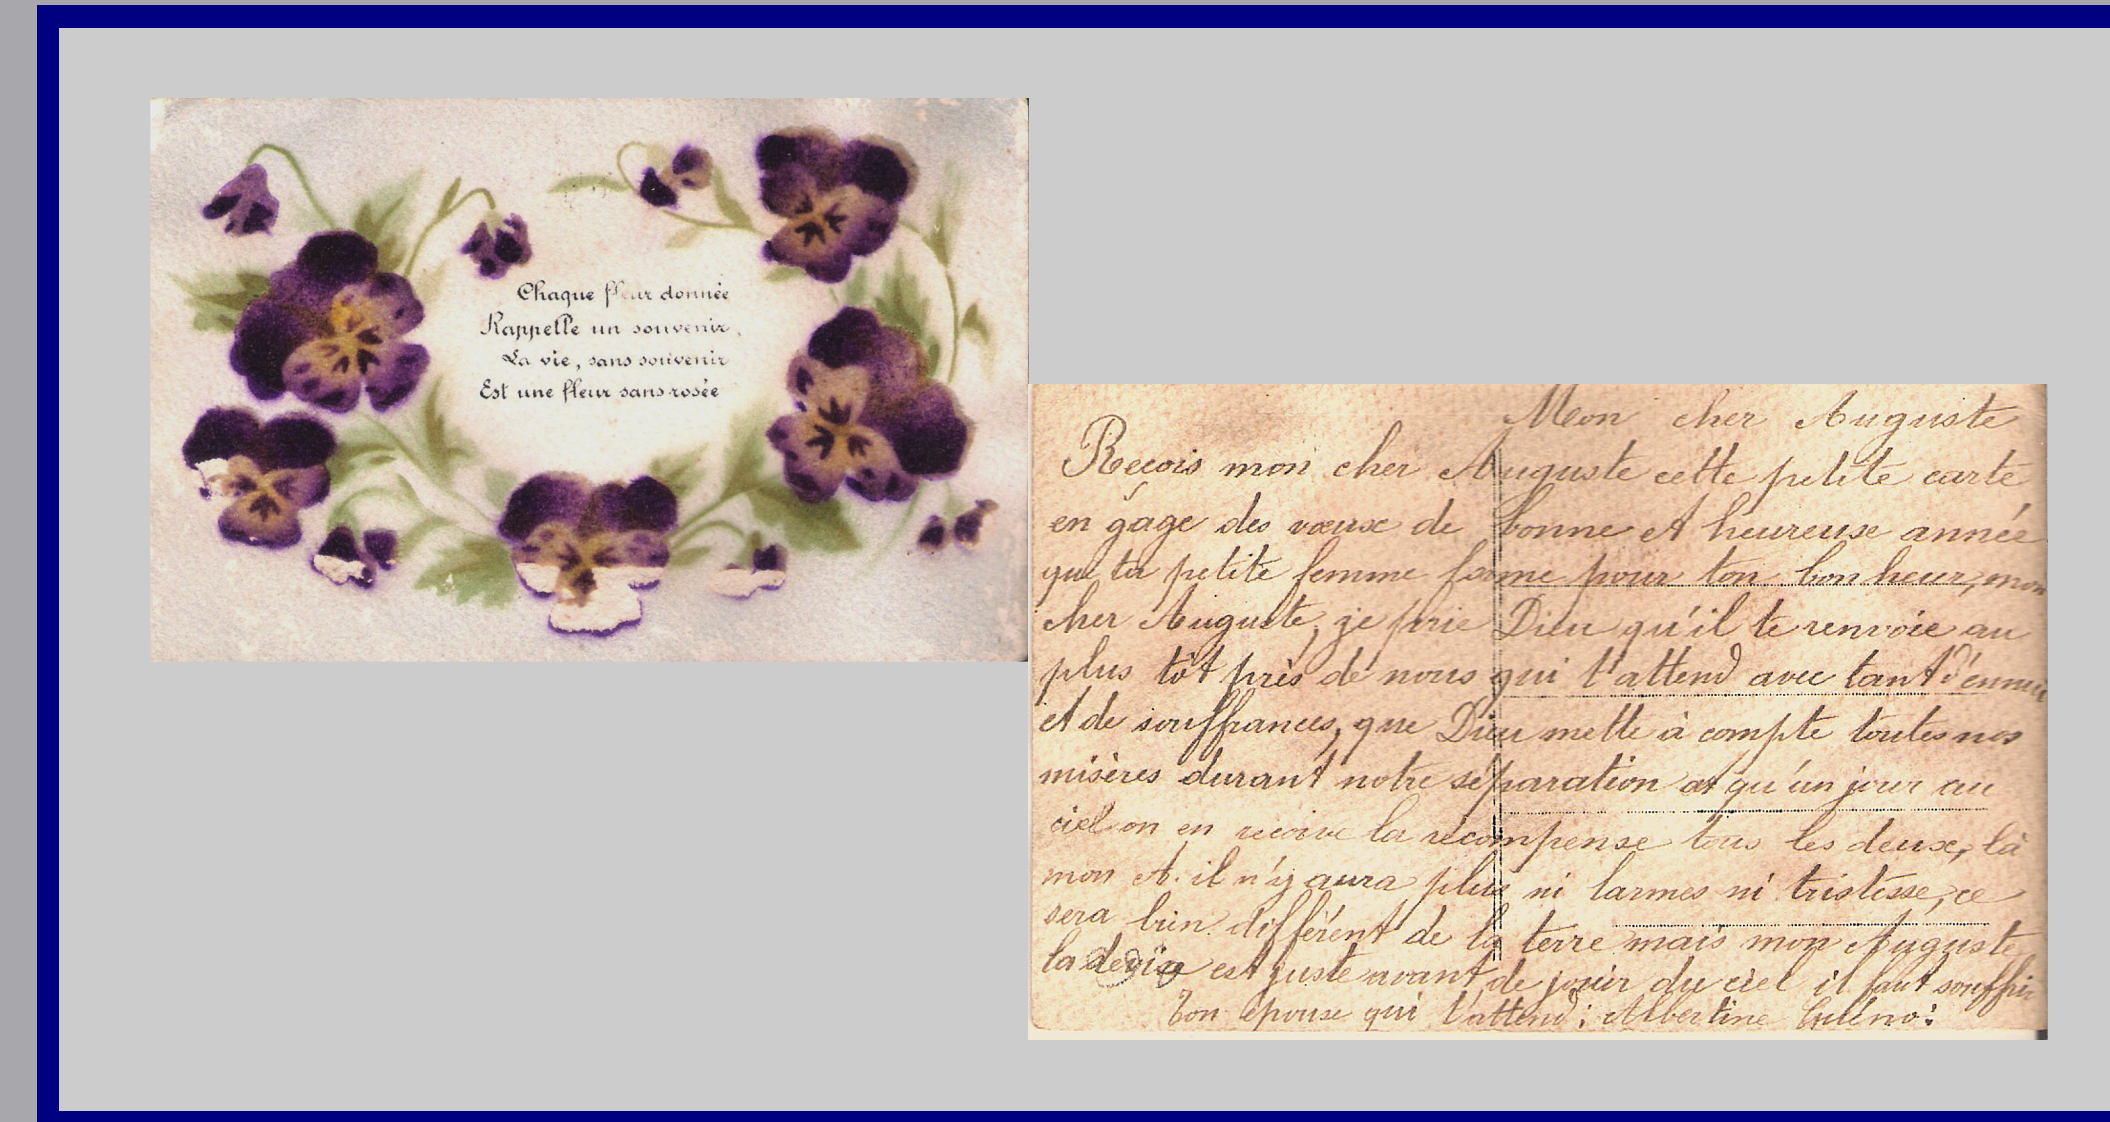 Chaque fleur donnée
Rappelle un souvenir,
La vie, sans souvenir
Est une fleur sans rosée
Mon cher Auguste
Reçois mon cher Auguste cette petite carte
en gage des vœux de bonne et heureuse année
que ta petite femme forme pour ton bonheur, mon
cher Auguste, je prie Dieu qu'il te renvoie au
plus tôt près de nous qui t'attend avec tant d'ennui
et de souffrances, que Dieu mette à compte toutes nos
misères durant notre séparation et qu'un jour au
ciel on en reçoive la récompense tous les deux, là
mon A. il n'y aura plus ni larmes ni tristesse, ce
sera bien différent de la terre mais mon Auguste
la est juste avant de jouir du ciel il faut souffrir
Ton épouse qui t'attend : Albertine